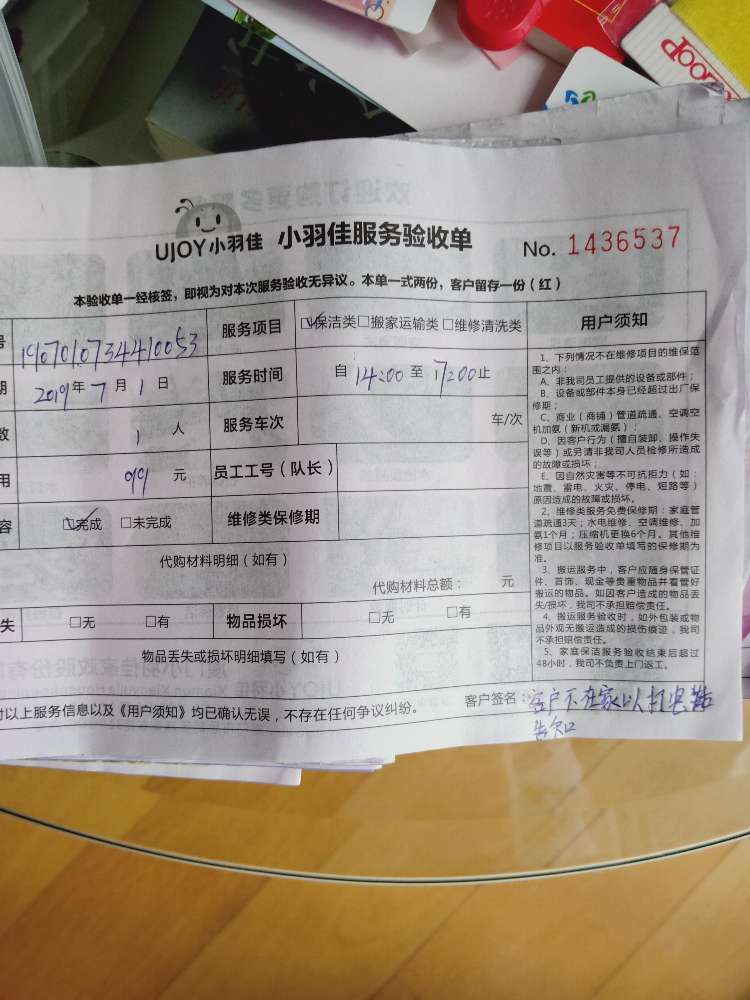 UJOY小羽佳 小羽佳服务验收单 No. 1436537
本验收单一经核签，即视为对本次服务验收无异议。本单一式两份，客户留存一份（红）
号 1907010734410053 服务项目 ☑保洁类□搬家运输类□维修清洗类
期 2019年7月1日 服务时间 自 14:00 至 17:00 止
数 1 人 服务车次 车/次
用 99 元 员工工号（队长）
容 ☑完成 □未完成 维修类保修期
代购材料明细（如有）
代购材料总额： 元
失 □无 □有 物品损坏 □无 □有
物品丢失或损坏明细填写（如有）
对以上服务信息以及《用户须知》均已确认无误，不存在任何争议纠纷。 客户签名：客户不在家以打电话
告知
用户须知
1、下列情况不在维修项目的维保范
围之内：
A、非我司员工提供的设备或部件；
B、设备或部件本身已经超过出厂保
修期；
C、商业（商铺）管道疏通、空调空
机加氨（新机或漏氨）；
D、因客户行为（擅自装卸、操作失
误等）或另请非我司人员检修所造成
的故障或损坏；
E、因自然灾害等不可抗拒力（如：
地震、雷电、火灾、停电、短路等）
原因造成的故障或损坏。
2、维修类服务免费保修期：家庭管
道疏通3天；水电维修、空调维修、加
氨1个月；压缩机更换6个月。其他维
修项目以服务验收单填写的保修期为
准。
3、搬运服务中，客户应随身保管证
件、首饰、现金等贵重物品并看管好
搬运的物品。如因客户造成的物品丢
失/损坏，我司不承担赔偿责任。
4、搬运服务验收时，如外包装或物
品外观无搬运造成的损伤痕迹，我司
不承担赔偿责任。
5、家庭保洁服务验收结束后超过
48小时，我司不负责上门返工。